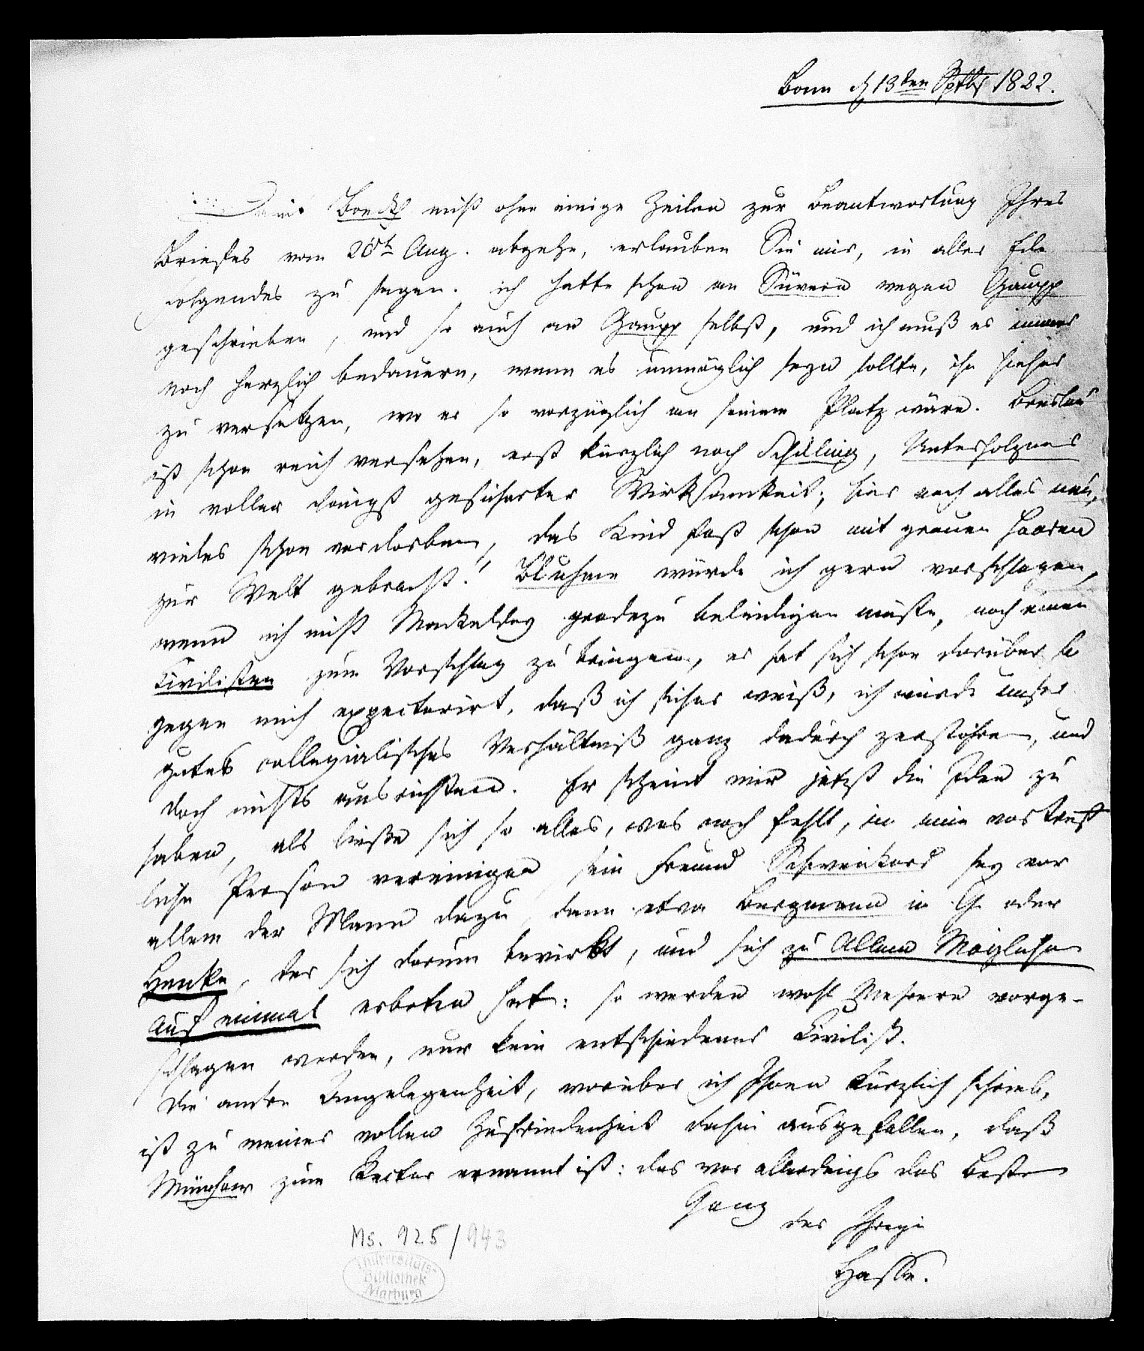 Bonn d 13ten Sptbr 1822.
Boeckh nicht ohne einige Zeilen zur Beantwortung Ihres
Briefes vom 28st Aug. abgehe, erlauben Sie mir, in aller Eile
folgendes zu sagen. ich hatte schon an Süvern wegen Gaupp
geschrieben, und so auch an Gaupp selbst, und ich muß es immer
noch herzlich bedauern, wenn es unmöglich seyn sollte, ihn hieher
zu versetzen, wo er so vorzüglich an seinem Platz wäre. Breslau
ist schon reich versehen, erst kürzlich noch Schilling, Unterholzner
in voller längst gesicherter Wirksamkeit; hier noch alles neu,
vieles schon verdorben, das Kind fast schon mit grauen Haaren
zur Welt gebracht! Bluhme würde ich gern vorschlagen,
wenn ich nicht Mackeldey geradezu beleidigen müßte, noch einen
Civilisten zum Vorschlag zu bringen, er hat sich schon darüber so
gegen mich expectorirt, daß ich sicher weiß, ich würde unser
gutes collegialisches Verhältniß ganz dadurch zerstöhren, und
doch nichts ausrichten. Er scheint mir jetzt die Idee zu
haben, als ließe sich so alles, was noch fehlt, in eine vortreff
liche Person vereinigen, sein Freund Schweikard sey vor
allem der Mann dazu, dann etwa Bergmann in G. oder
Henke, der sich darum bewirbt, und sich zu Allem Möglichen
auf einmal erboten hat: so werden wohl Mehrere vorge-
schlagen werden, nur kein entschiedener Civilist.
Die andre Angelegenheit, worüber ich Ihnen kürzlich schrieb,
ist zu meiner vollen Zufriedenheit dahin ausgefallen, daß
zum Rector ernannt ist: das war allerdings das Beste
Ganz
der Ihrige
Hasse.
Ms. 925/943
Universitäts-
Bibliothek
Marburg